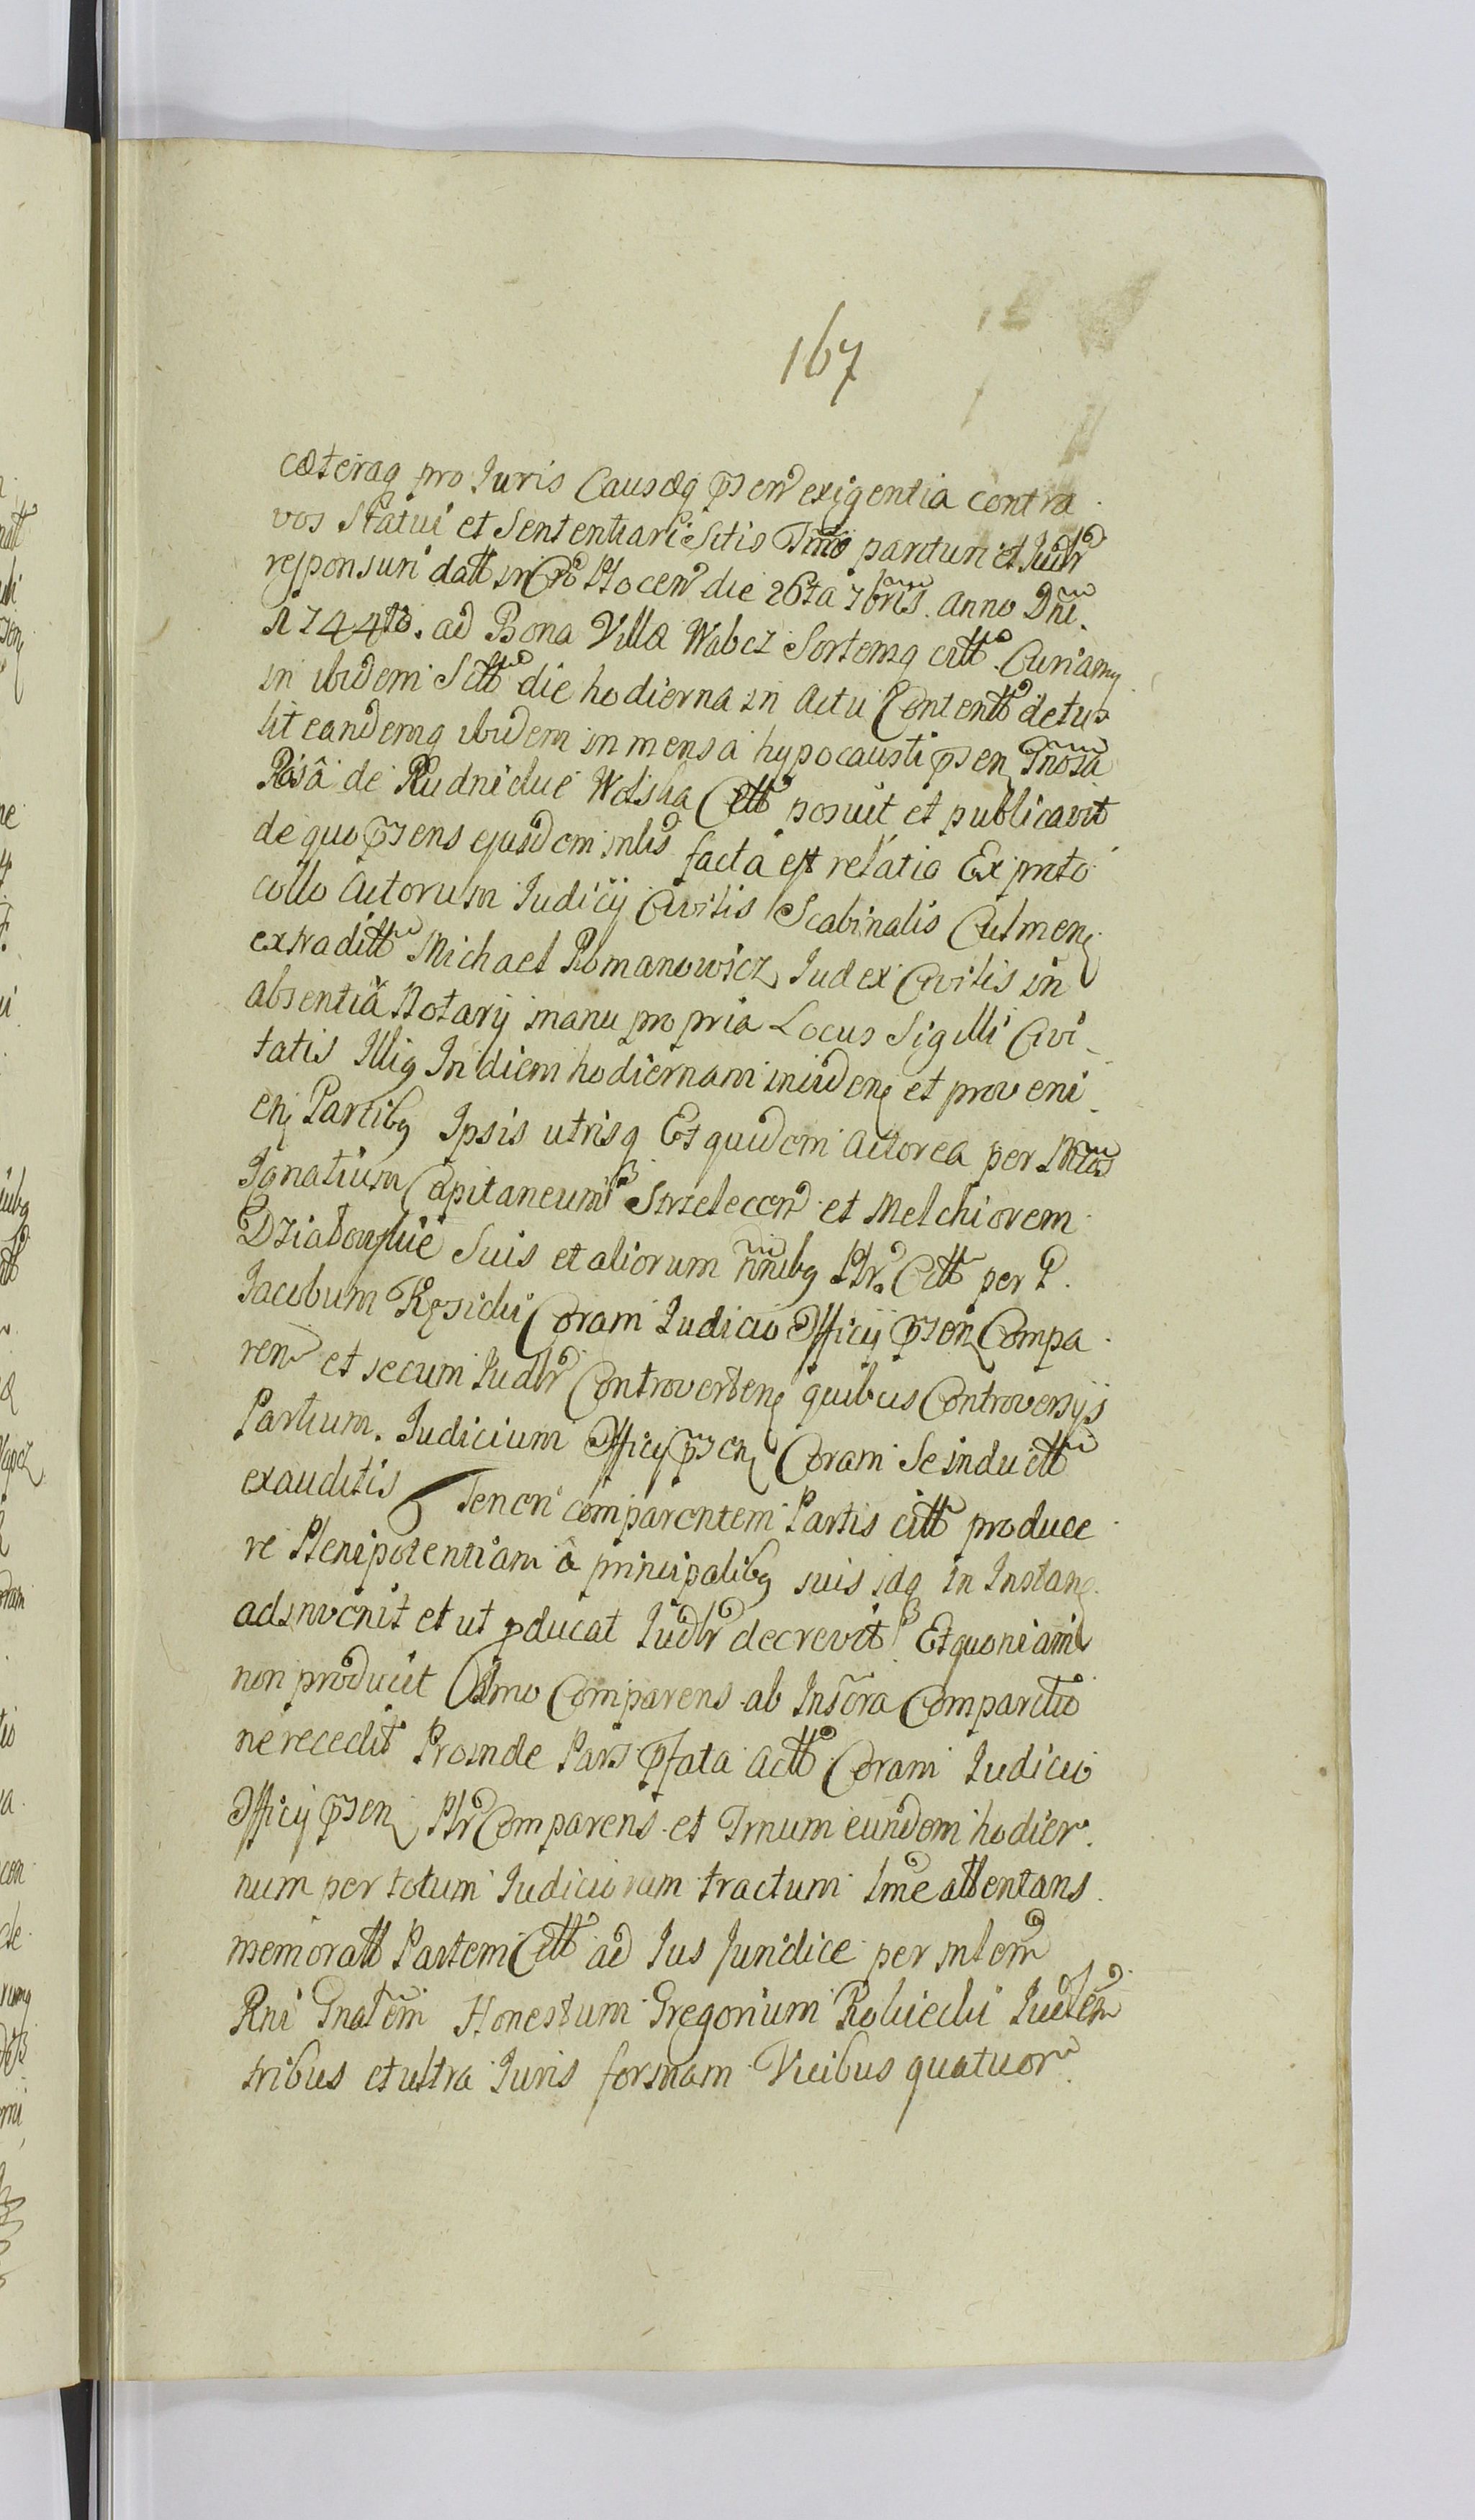 167
cæteraq pro Juris Causæq pñsen exigentia contra
vos Statui et Sententiari Sitis Tmo parituri et Judlr
responsuri datt in Cro die 26ta 7bris. Anno Dni.
1744to. ad Bona Villæ Wabcz Sortemq citt. Curiamq
in ibidem Sitt die hodierna in actu Content detu
lit eandemq ibidem in mensa hypocausti pñsen Gnosa
Rosâ de Rudnickie Wolska Citt posuit et publicavit
de quo pñsens ejusdem mlis facta est relatio Ex proto
collo Actorum Judicij Civilis Scabinalis Culmen
extraditt Michael Romanowicz Judex Civilis in
absentia Notarij manu propria Locus Sigilli Civi
tatis Illiq In diem hodiernam inciden et proveni
en Partibq Ipsis utrisq Et quidem Actorea per Mcos
Ignatium Capitaneum Strzelecen et Melchiorem
Działowskie Suis et aliorum nnibq Plr. Citt per P.
Jacobum Kęsicki Coram Judicio Officij pñsen Compa
ren et secum Judlr Controverten quibus Controversijs
Partium. Judicium Officij pñsen Coram Se induitt
exauditis Teneri comparentem Partis citt produce
re Plenipotentiam â principalibq suis idq in Instan
adinvenit et ut pducat Judlr decrevit Et quoniam
non producit Imo Comparens ab Inscra Comparitio
ne recedit Proinde Pars pfata Actt Coram Judicio
Officij pñsen Plr Comparens et Trnum eundem hodier
num per totum Judiciorum tractum lme attentans
memoratt Partem Citt ad Jus Juridice per mlem
Rni Gnalem Honestum Gregorium Robiecki Judlem
tribus et ultra Juris formam Vicibus quatuor